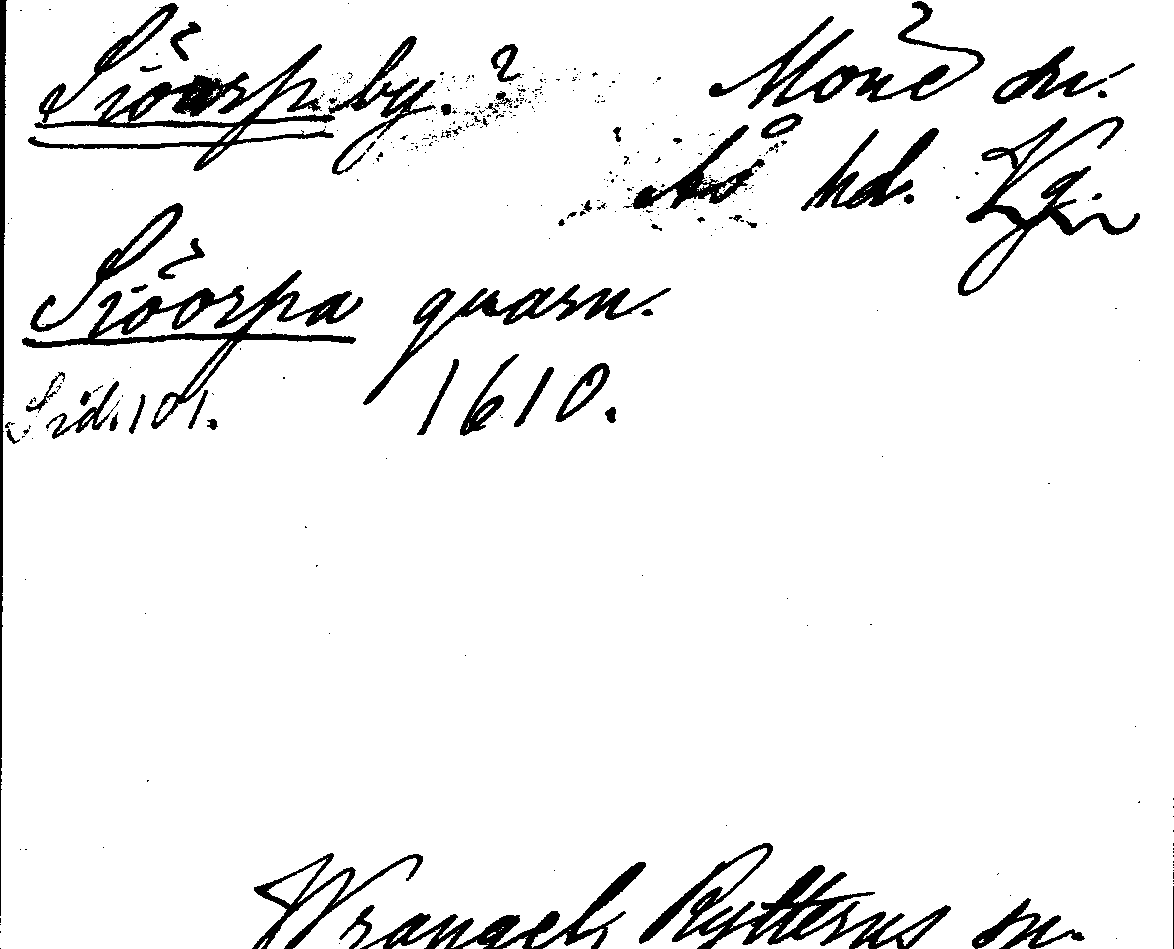 Siöorp by. ? Mone sn.
Ås hd. Vg.
Siöorpa quarn.
Sid. 101. 1610.
Wrangel, Rytterns sn.